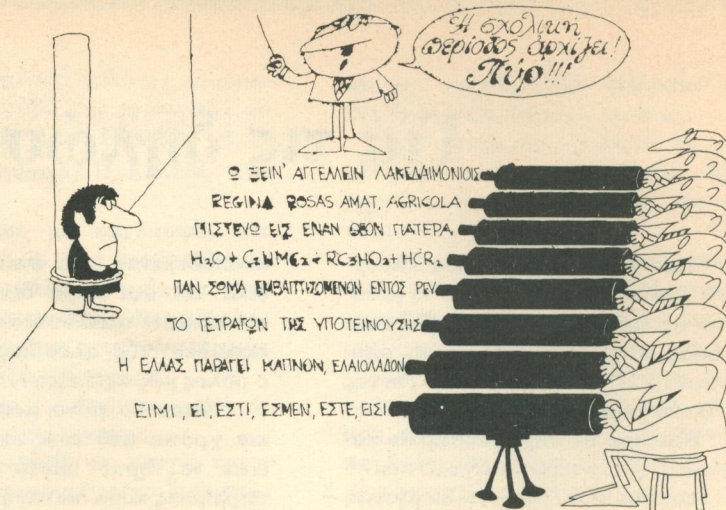 Ἡ σχολική
περίοδος ἀρχίζει!
Πῦρ!!!
Ω ΞΕΙΝ' ΑΓΓΕΛΛΕΙΝ ΛΑΚΕΔΑΙΜΟΝΙΟΙΣ
REGINA ROSAS AMAT, AGRICOLA
ΠΙΣΤΕΥΩ ΕΙΣ ΕΝΑΝ ΘΕΟΝ ΠΑΤΕΡΑ
ΠΑΝ ΣΩΜΑ ΕΜΒΑΠΤΙΖΟΜΕΝΟΝ ΕΝΤΟΣ ΡΕΥ
ΤΟ ΤΕΤΡΑΓΩΝ ΤΗΣ ΥΠΟΤΕΙΝΟΥΣΗΣ
Η ΕΛΛΑΣ ΠΑΡΑΓΕΙ ΚΑΠΝΟΝ, ΕΛΑΙΟΛΑΔΟΝ
ΕΙΜΙ, ΕΙ, ΕΣΤΙ, ΕΣΜΕΝ, ΕΣΤΕ, ΕΙΣΙ